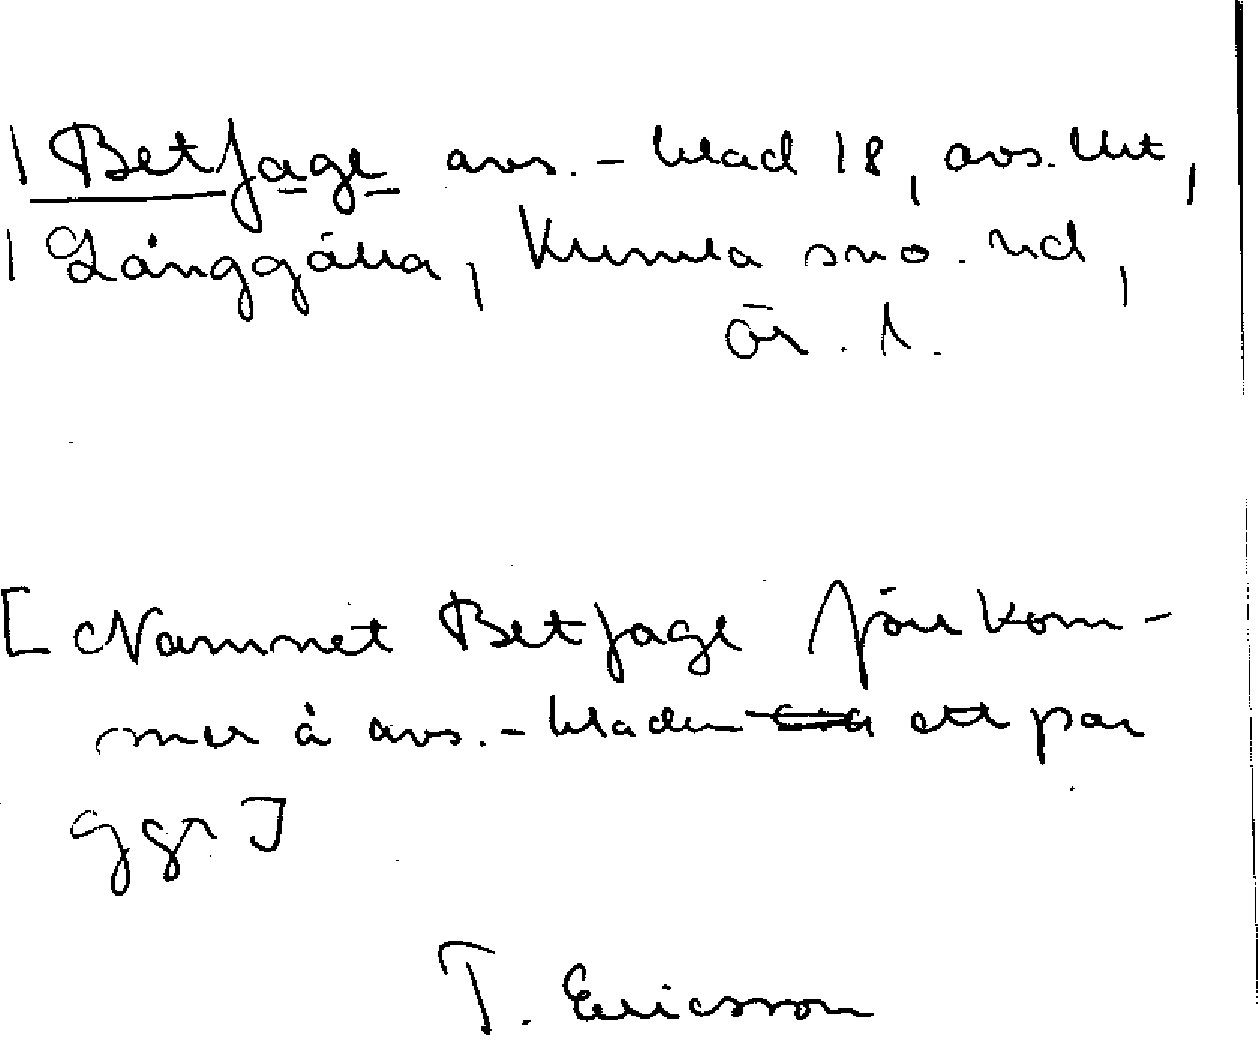 | Betfage avs.-blad 18, avs. utr,
| Långgälla, Kumla sn o. hd,
Ör. l.
[Namnet Betfage förekom-
mer å avs.-bladen ett par
ggr]
T. Ericsson